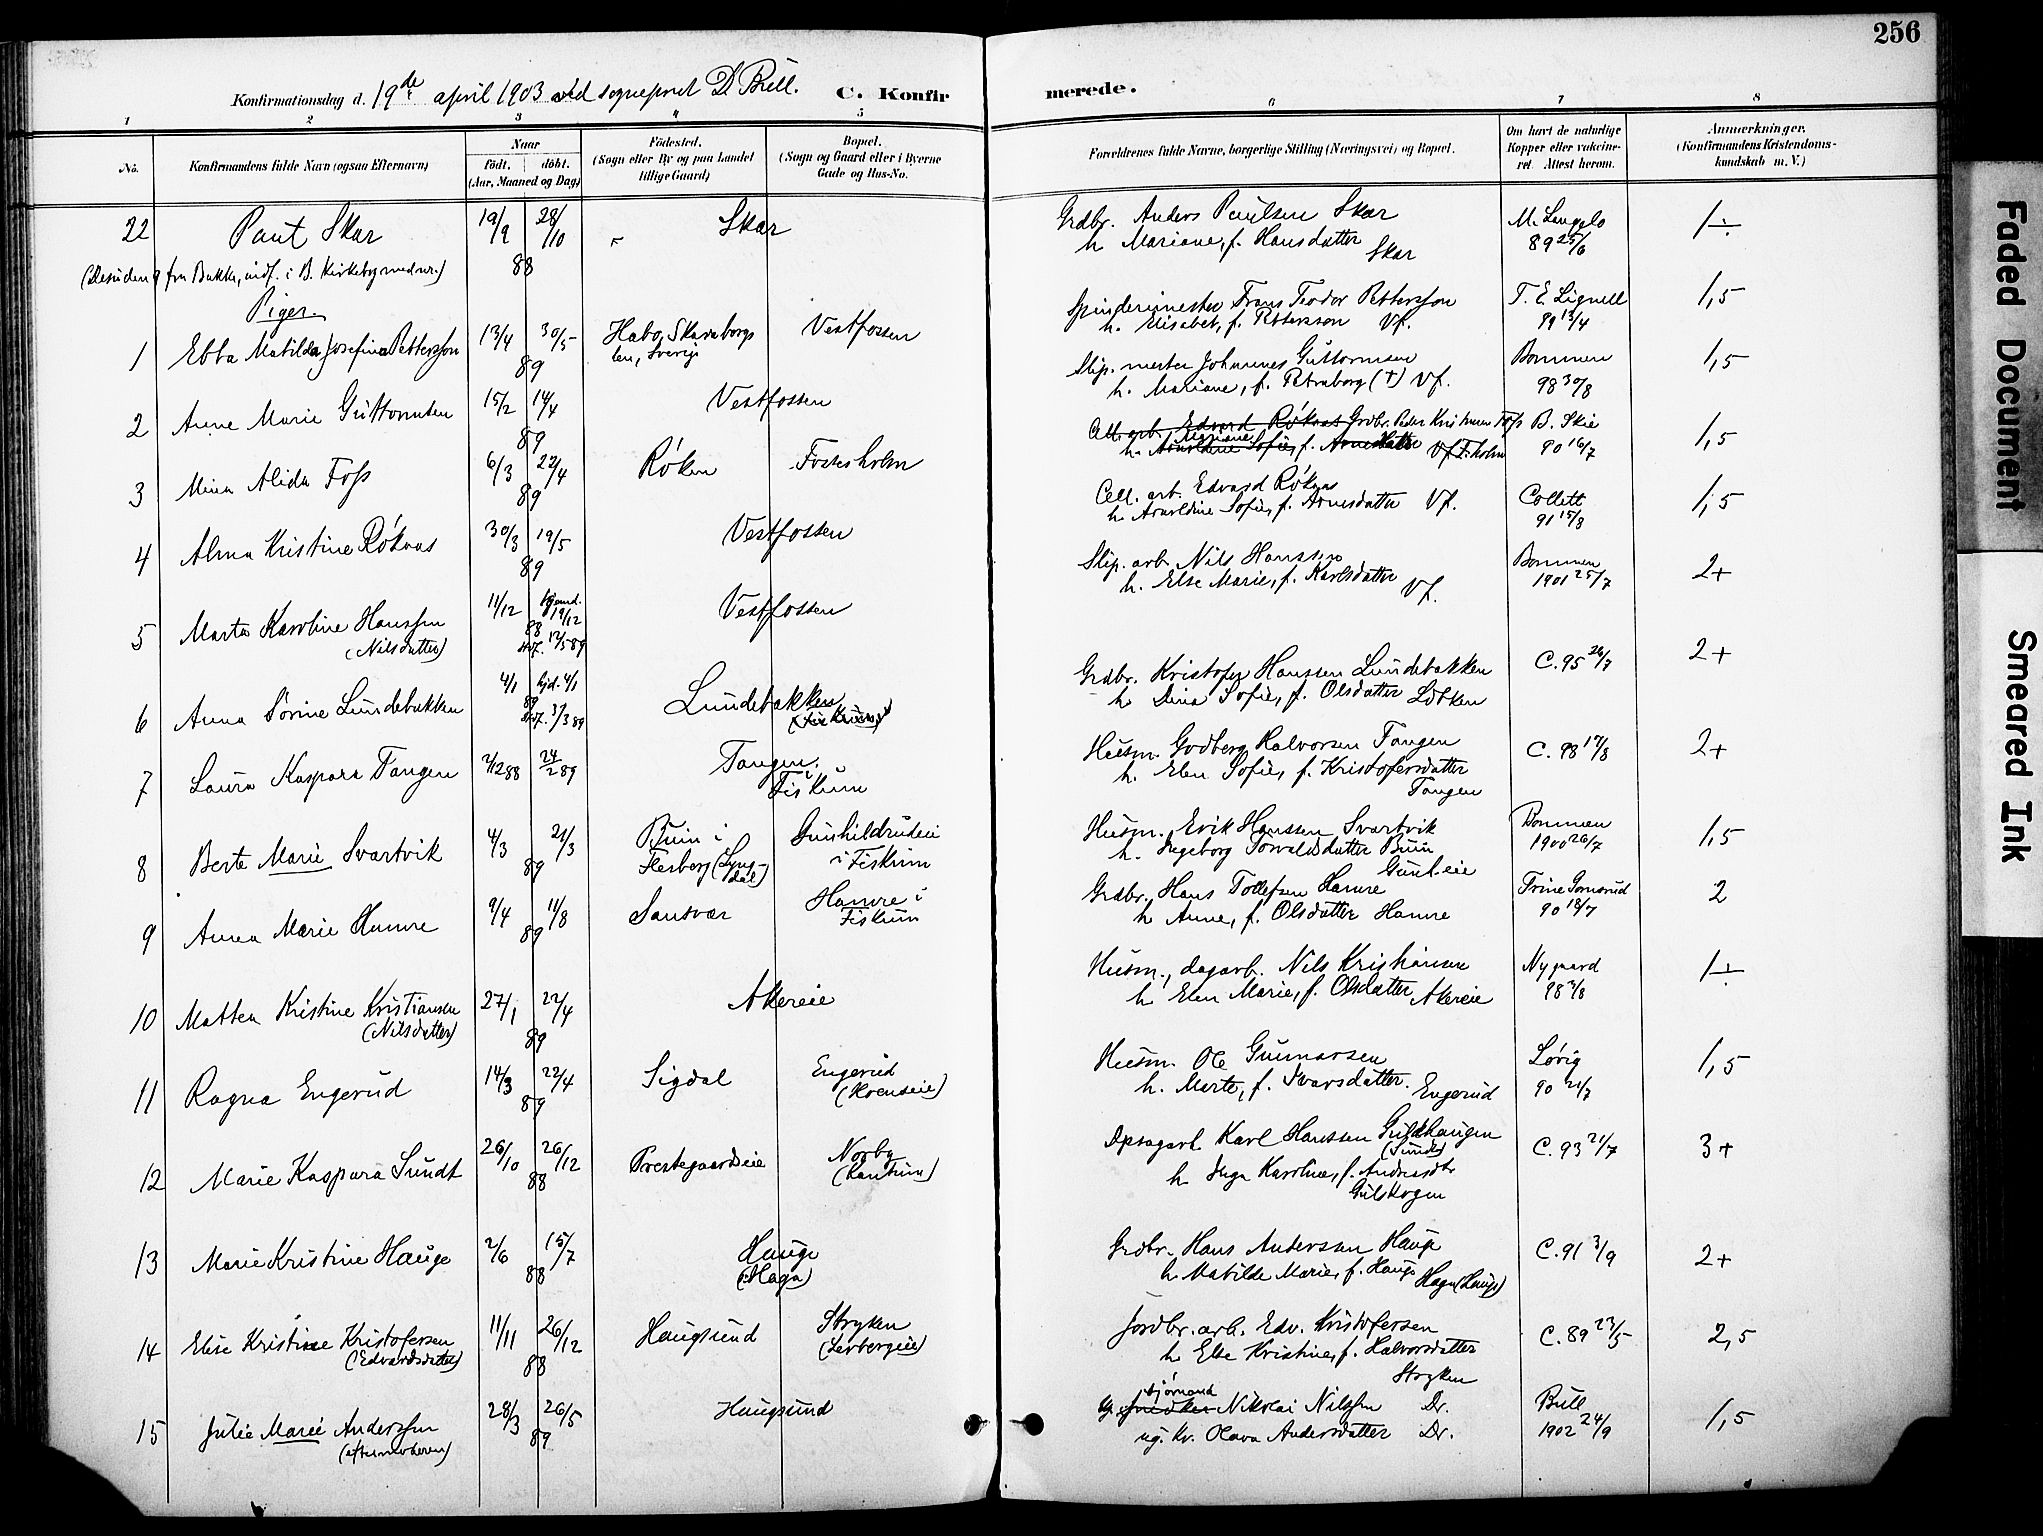 256
Konfirmationsdag d. 19de april 1903 ved sogneprest D. Bull. C. Konfirmerede.
1 2 3 4 5 6 7 8
No. Konfirmandens fulde Navn (ogsaa Efternavn) Naar født, døbt. (Aar, Maaned og Dag) Fødested. (Sogn eller By og paa Landet tillige Gaard) Bopæl. (Sogn og Gaard eller i Byerne Gade og Hus-No. Forældrenes fulde Navne, borgerlige Stilling (Næringsvei) og Bopæl. Om havt de naturlige Kopper eller vaccineret. Attest herom. Anmærkninger. (Konfirmandens Kristendomskundskab m. V.)
22 Paul Skar 19/9 28/10 88 Skar Grdbr. Anders Paulsen Skar h. Mariane, f. Hansdatter Skar M. Langelo 89 25/6 1÷
fra Bakke, indf. i B. Kirkebog med nr.)
Piger.
1 Ebba Matilda Josefina Pettersson 13/4 30/5 89 Habo, Skaraborgs len, Sverige Vestfossen Spinderimester Frans Teodor Pettersson h. Elisabet, f. Pettersson Vf. T. E. Lignell 99 13/4 1,5
2 Anne Marie Guttormsen 15/2 14/4 89 Vestfossen Slip. mester Johannes Guttormsen h. Mariane, f. Petersborg (+) Vf. Bommen 98 30/8 1,5
3 Mina Alida Foss 6/3 22/4 89 Røken Fosesholm Cell. arb. Edvard Røkaas Grdbr. Peder Kristiansen Foss h. Mariane Sofie, f. Arnesdatter Vf. F.holm B. Skie 90 16/7 1,5
4 Alma Kristine Røkaas 30/3 19/5 89 Vestfossen Cell. arb. Edvard Røkaas h. Sofie, f. Arnesdatter Vf. Collett 91 15/8 1,5
5 Marta Karoline Hanssen (Nilsdatter) 11/12 Hjemd. 19/12 88 12/5 89 Vestfossen Slip. arb. Nils Hanssen h. Else Marie, f. Karlsdatter Vf. Bommen 1901 25/7 2+
6 Anna Sørine Lundebakken 4/1 hjd. 4/1 89 3/3 89 Lundebakken (Fiskum) Grdbr. Kristofer Hanssen Lundebakken h. Dina Sofie, f. Olsdatter L.bken C. 95 26/7 2+
7 Laura Kaspara Tangen 2/12 88 24/2 89 Tangen, i Fiskum Husm. Godberg Halvorsen Tangen h. Elen Sofie, f. Kristofersdatter Tangen C. 98 17/8 2+
8 Berte Marie Svartvik 4/3 21/3 89 Buin i Flesberg (Lyngdal) Gunhildrudeie i Fiskum Husm. Erik Hanssen Svartvik h. Ingeborg Torvaldsdatter Buin Gunh.eie Bommen 1900 26/7 1,5
9 Anna Marie Hamre 9/4 11/8 89 Sansvær Hamre i Fiskum Grdbr. Hans Tollefsen Hamre h. Anne, f. Olsdatter Hamre Trine Gomsrud 90 18/7 2
10 Mattea Kristine Kristiansen (Nilsdatter) 27/1 22/4 89 Akereie Husm., dagarb. Nils Kristiansen h. Elen Marie, f. Olsdatter Akereie Nygaard 98 3/8 1÷
11 Ragna Engerud 14/3 22/4 89 Sigdal Engerud (Hoenseie) Husm. Ole Gunnarsen h. Marte, f. Ivarsdatter. Engerud Løvig 90 21/7 1,5
12 Marie Kaspara Sundt 26/10 26/12 88 Prestegaardseie Norby (Lantum) Dpsagarb Karl Hanssen Gulskaugen (Sundt) h. Inga Karoline, f. Andreasdtr Gulskogen C. 93 21/7 3+
13 Marie Kristine Hauge 2/6 15/7 88 Hauge (Haga) Grdbr. Hans Anderssen Hauge h. Matilde Marie, f. Hauge Haga (Hauge) C. 91 3/9 2+
14 Elise Kristine Kristofersen (Edvardsdatter) 11/11 26/12 88 Haugsund Stryken (Lerbergeie) Jordbr. arb. Edv. Kristofersen h. Else Kristine, f. Halvorsdatter Stryken C. 89 23/5 2,5
15 Julie Marie Anderssen (efter moderen) 28/3 26/5 89 Haugsund sjømand Nikolai Nilssen Dr. ug. kv. Olava Andersdatter Dr. Bull 1902 24/9 1,5
Faded Document
Smeared Ink